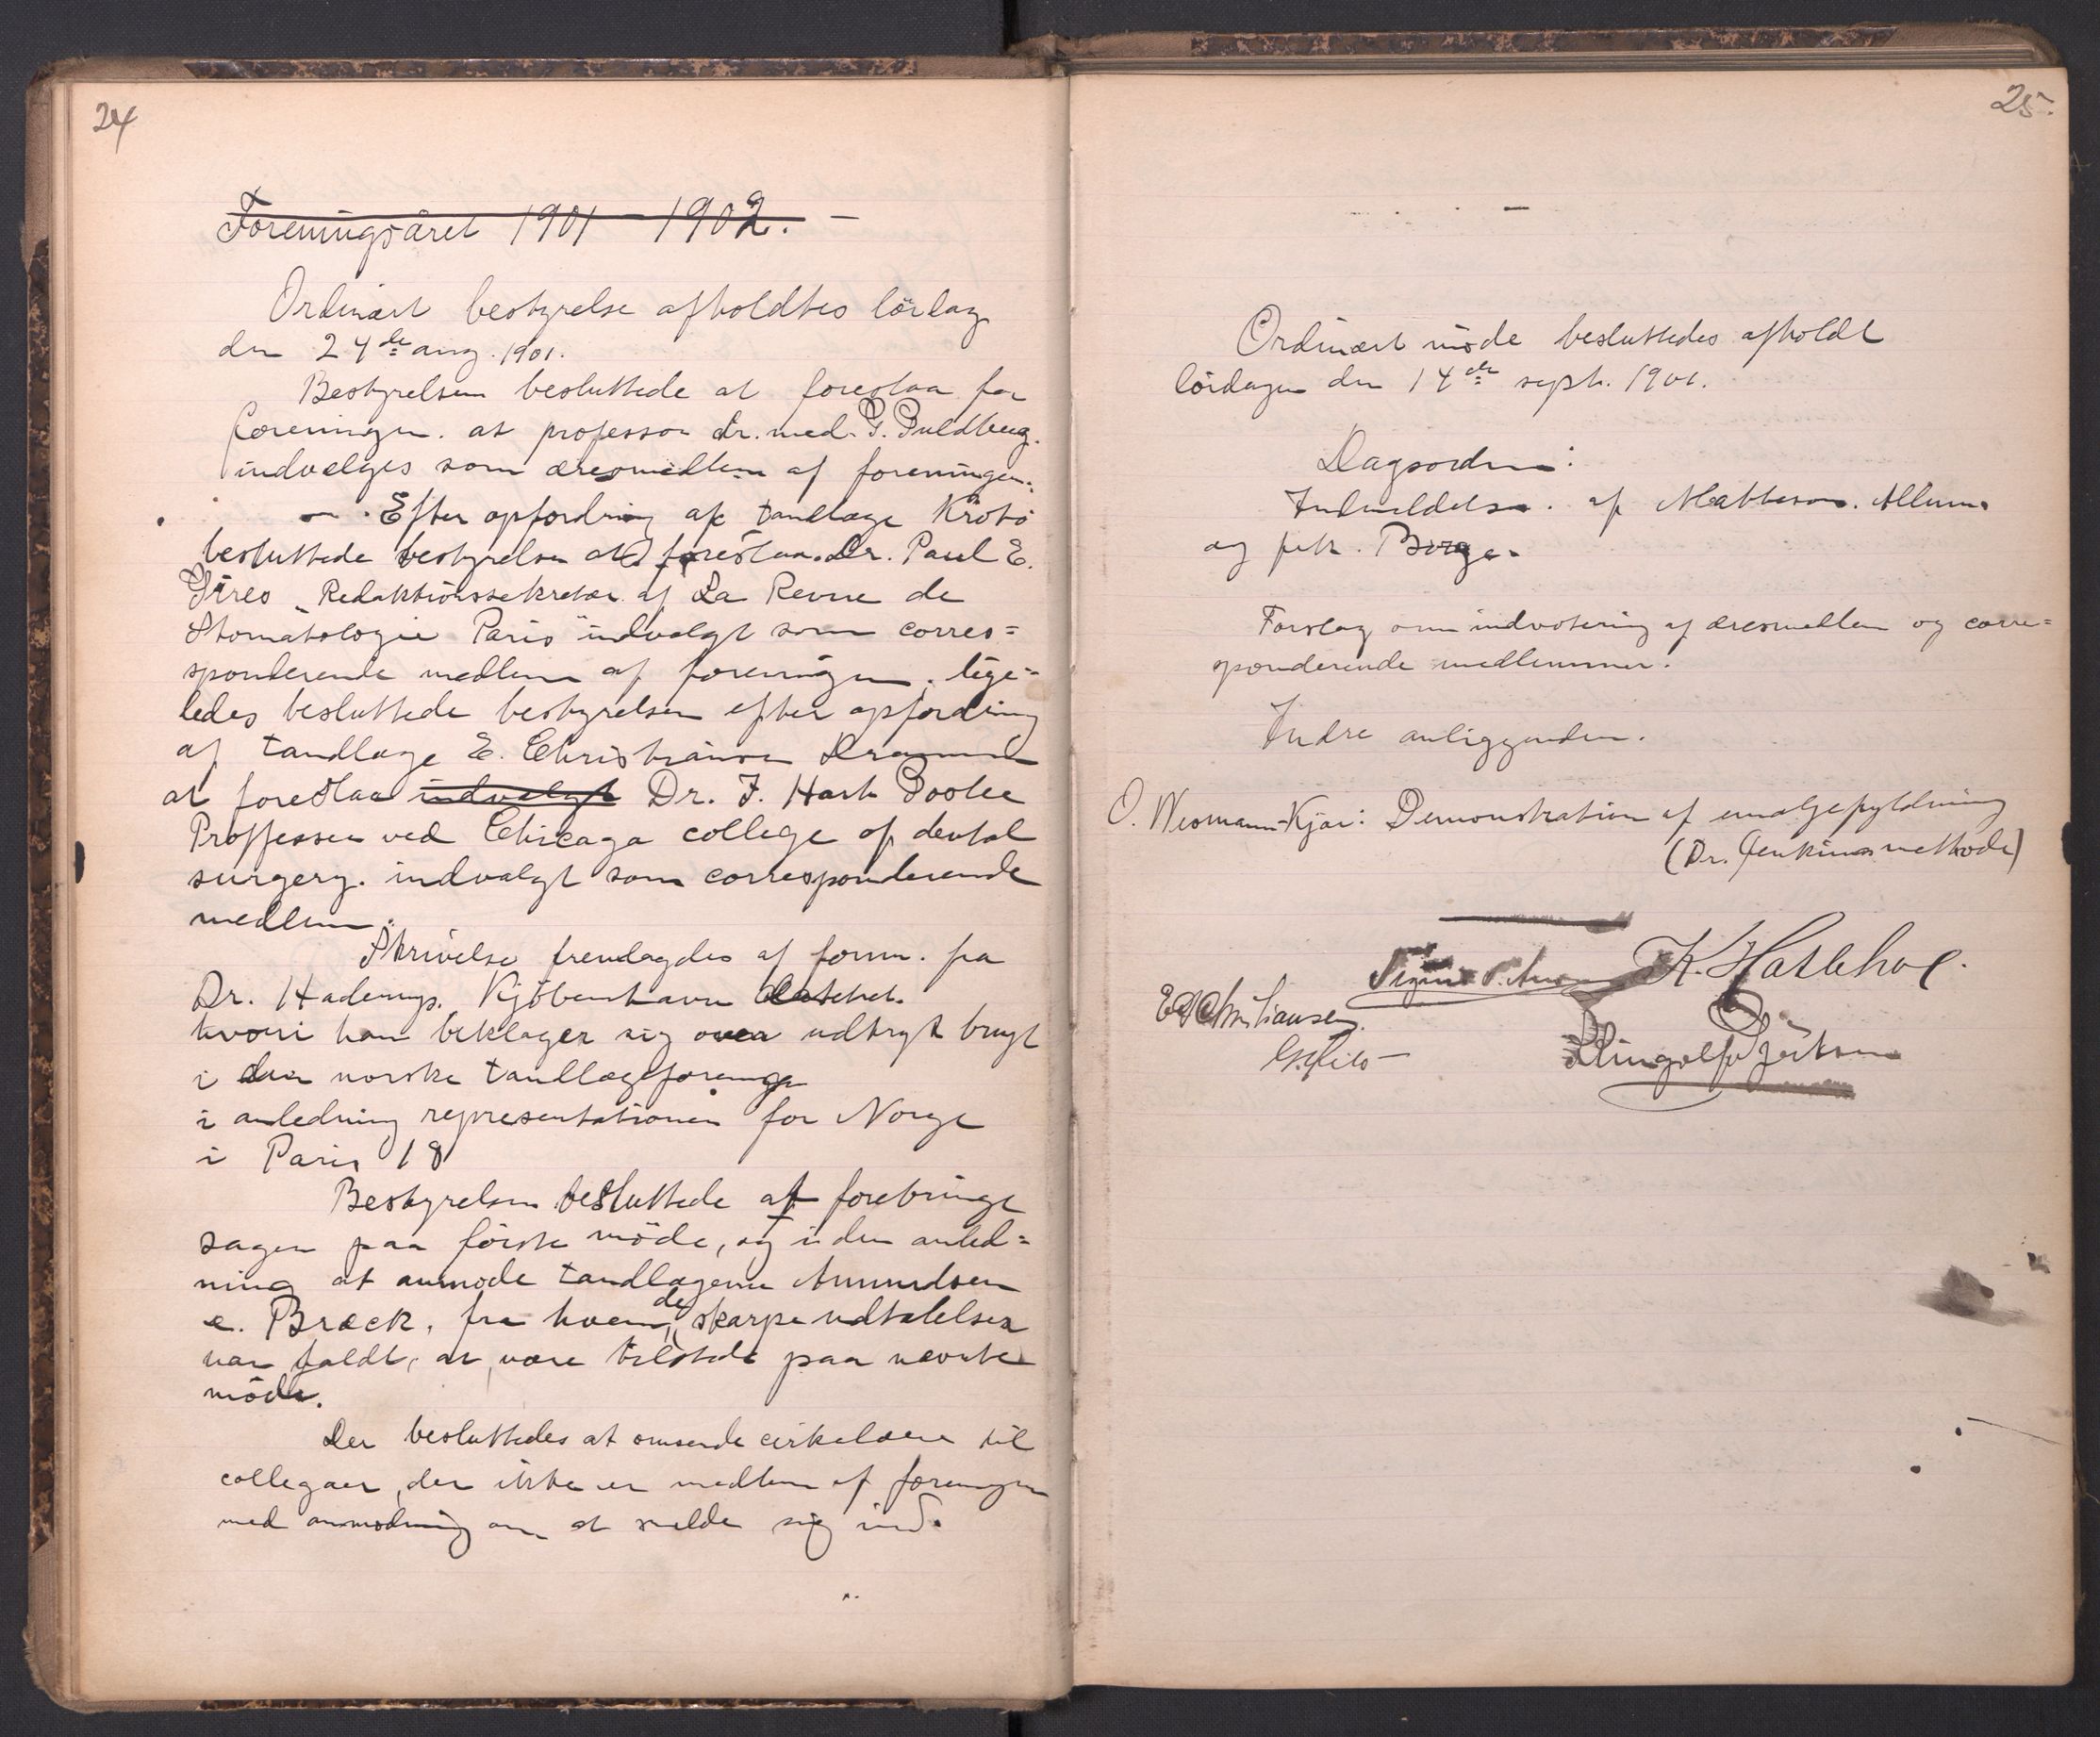 24
Foreningsåret 1901 – 1902. –
Ordinært bestyrelse afholdtes lördag
den 24de aug. 1901.
Bestyrelsen besluttede at foreslaa for
foreningen. at professor dr. med. G. Guldberg.
indvælges som æresmedlem af foreningen.
Efter opfordring af tandlæge
besluttede bestyrelsen at foreslaa Dr. Paul E.
Gires „Redaktionssekretær af La Revue de
Stomatologie Paris" indvalgt som corres=
sponderende medlem af foreningen. lige=
ledes besluttede bestyrelsen efter opfordring
af tandlæge E. Christiansen Drammen
at foreslaa indvalgt Dr. J. Hart Poolee
Proffessor ved Chicaga college of dental
surgery. indvalgt som corresponderende
medlem.
Skrivelse fremlagdes af form. fra
Dr. Haderup. Kjöbenhavn
hvori han beklager sig over udtryk brugt
i den norske tandlægeforening
i anledning representationen for Norge
i Paris 18
Bestyrelsen besluttede at forebringe
sagen paa förste möde, og i den anled=
ning at anmode tandlægerne Amundsen
e. Bræck, fra hvem de skarpe udtalelser
var faldt, at være tilstede paa nævnte
möde.
Der besluttedes at omsende cirkelære til
collegaer, der ikke er medlem af foreningen
med anmodning om at melde sig ind.
25.
Ordinært möde besluttedes afholdt
lördagen den 14de sept. 1901.
Dagsorden:
Indmeldelse. af Matteson. Allum.
og frk. Borge.
Forslag om indvotering af æresmedlem og corre=
sponderende medlemmer.
Indre anliggender.
O. Wesmann-Kjær: Demonstration af emaljefyldning
(Dr. Jenkins methode)
K. Haslehoe.
E Christiansen.